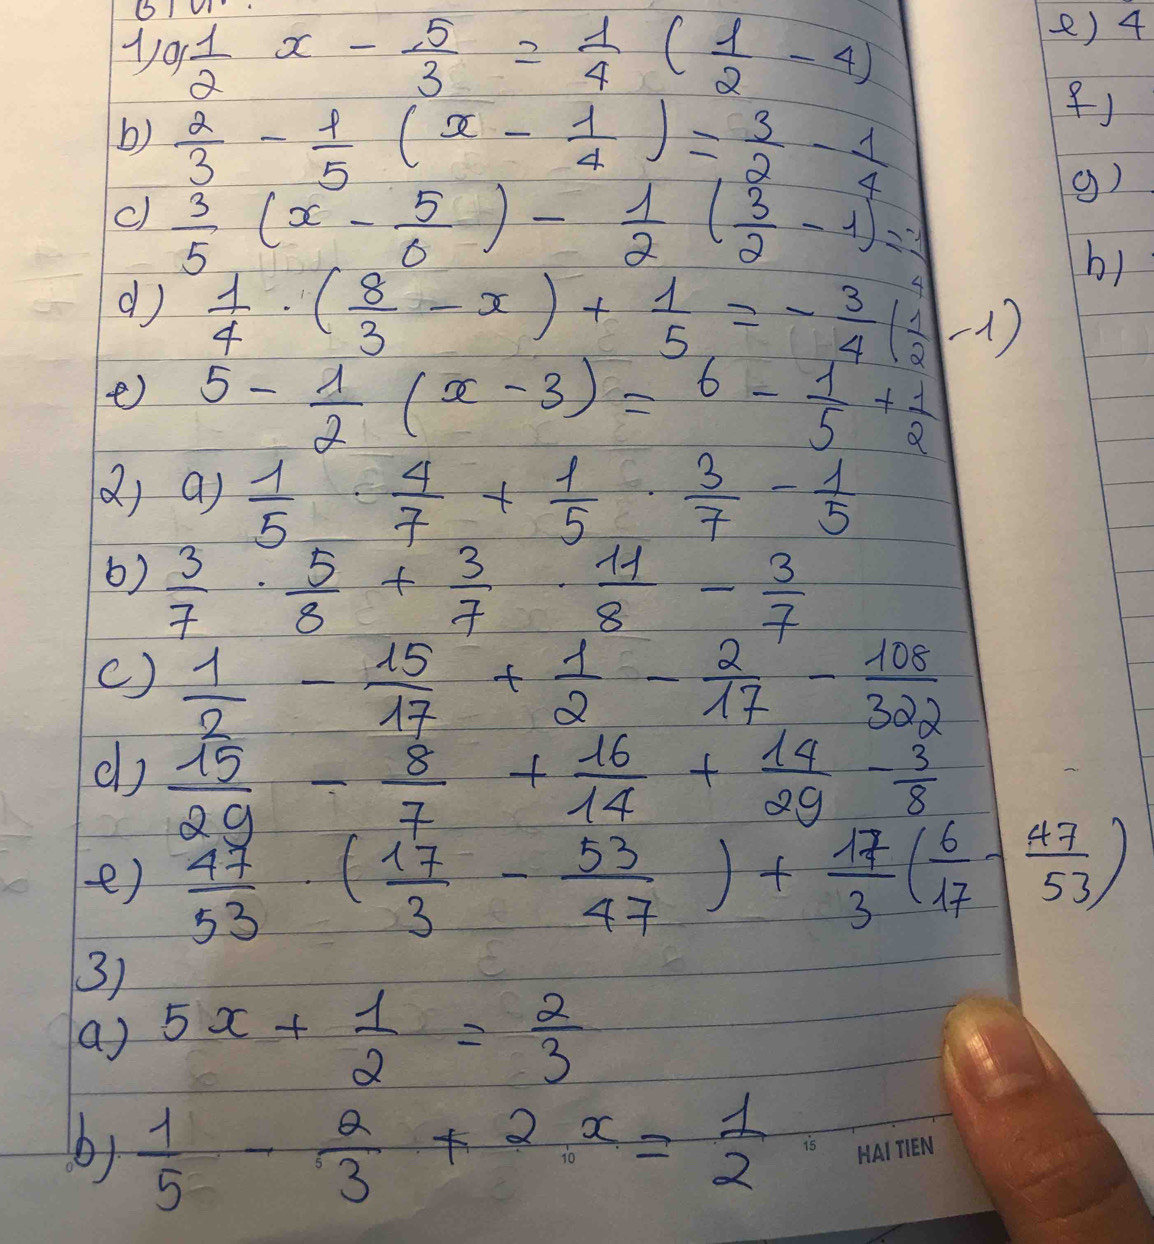 1) a) 1/2 x - 5/3 = 1/4 (1/2 - 4)
b) 2/3 - 1/5 (x - 1/4) = 3/2 - 1/4
c) 3/5 (x - 5/6) - 1/2 (3/2 - 1) =
d) 1/4 . (8/3 - x) + 1/5 = - 3/4 (1/2 - 1)
e) 5 - 1/2 (x - 3) = 6 - 1/5 + 1/2
2) a) 1/5 . 4/7 + 1/5 . 3/7 - 1/5
b) 3/7 . 5/8 + 3/7 . 11/8 - 3/7
c) 1/2 - 15/17 + 1/2 - 2/17 - 108/322
d) 15/29 - 8/7 + 16/14 + 14/29 - 3/8
e) 47/53 . (17/3 - 53/47) + 17/3 (6/17 - 47/53)
3)
a) 5x + 1/2 = 2/3
b) 1/5 - 2/3 + 2x = 1/2
0 5 10 15 HAI TIEN
e) 4
f)
g)
h)